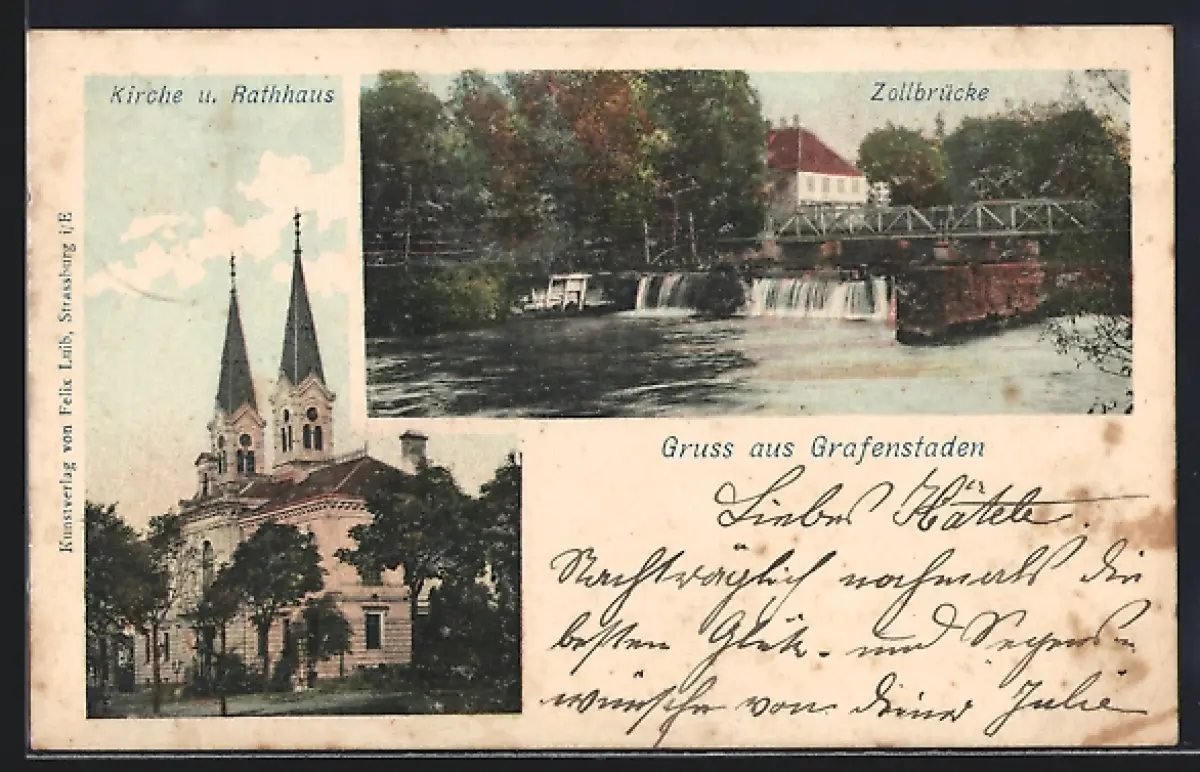 Kirche u. Rathhaus
Zollbrücke
Kunstverlag von Felix Luib, Strassburg i/E
Gruss aus Grafenstaden
Liebes
Nachträglich nochmals die
besten Glück- und Segens-
wünsche von deiner Julie